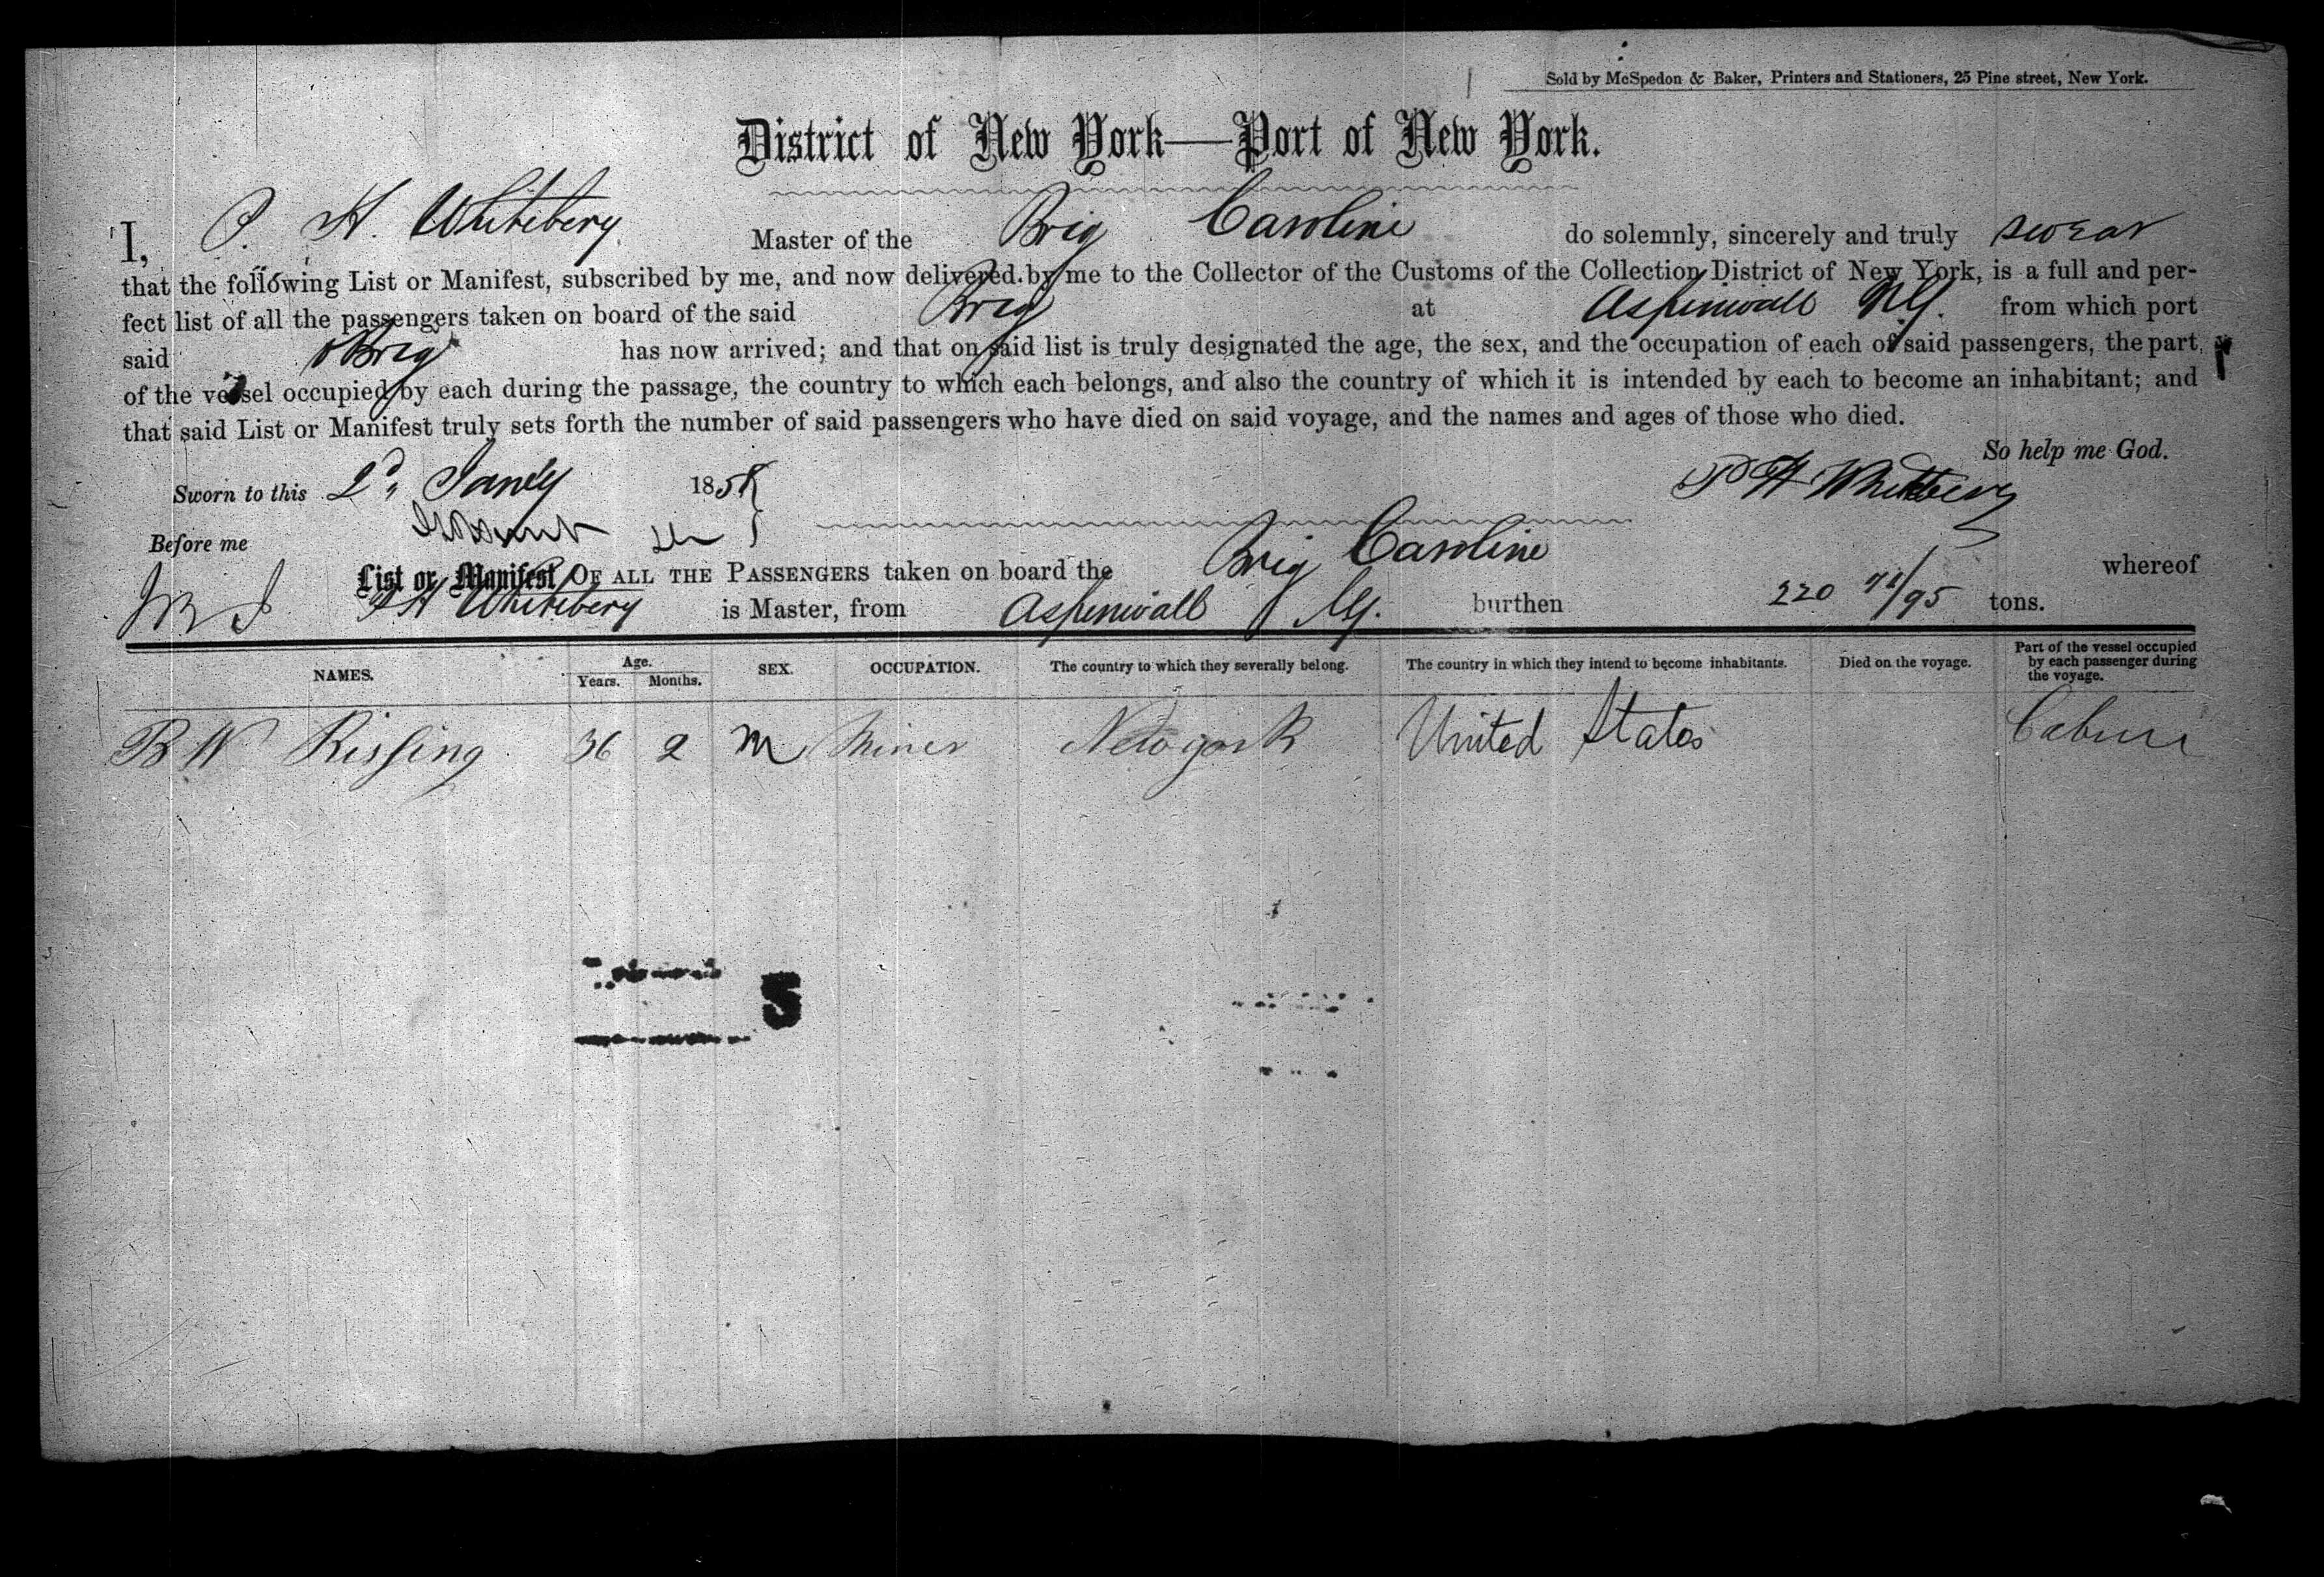 Sold by McSpedon & Baker, Printers and Stationers, 25 Pine street, New York.
District of New York—Port of New York.
I, P. H. Whitebery Master of the Brig Caroline do solemnly, sincerely and truly swear
that the following List or Manifest, subscribed by me, and now delivered by me to the Collector of the Customs of the Collection District of New York, is a full and per-
fect list of all the passengers taken on board of the said Brig at Aspinwall N.G. from which port
said Brig has now arrived; and that on said list is truly designated the age, the sex, and the occupation of each of said passengers, the part
of the vessel occupied by each during the passage, the country to which each belongs, and also the country of which it is intended by each to become an inhabitant; and
that said List or Manifest truly sets forth the number of said passengers who have died on said voyage, and the names and ages of those who died.
So help me God.
Sworn to this 2d Jany 185 P H Whitebery
Before me
List or Manifest OF ALL THE PASSENGERS taken on board the Brig Caroline whereof
P H Whitebery is Master, from Aspinwall N.G. burthen 220 /95 tons.
NAMES. Age. Years. Months. SEX. OCCUPATION. The country to which they severally belong. The country in which they intend to become inhabitants. Died on the voyage. Part of the vessel occupied by each passenger during the voyage.
B W Rissing 36 2 M Miner New york United States Cabin